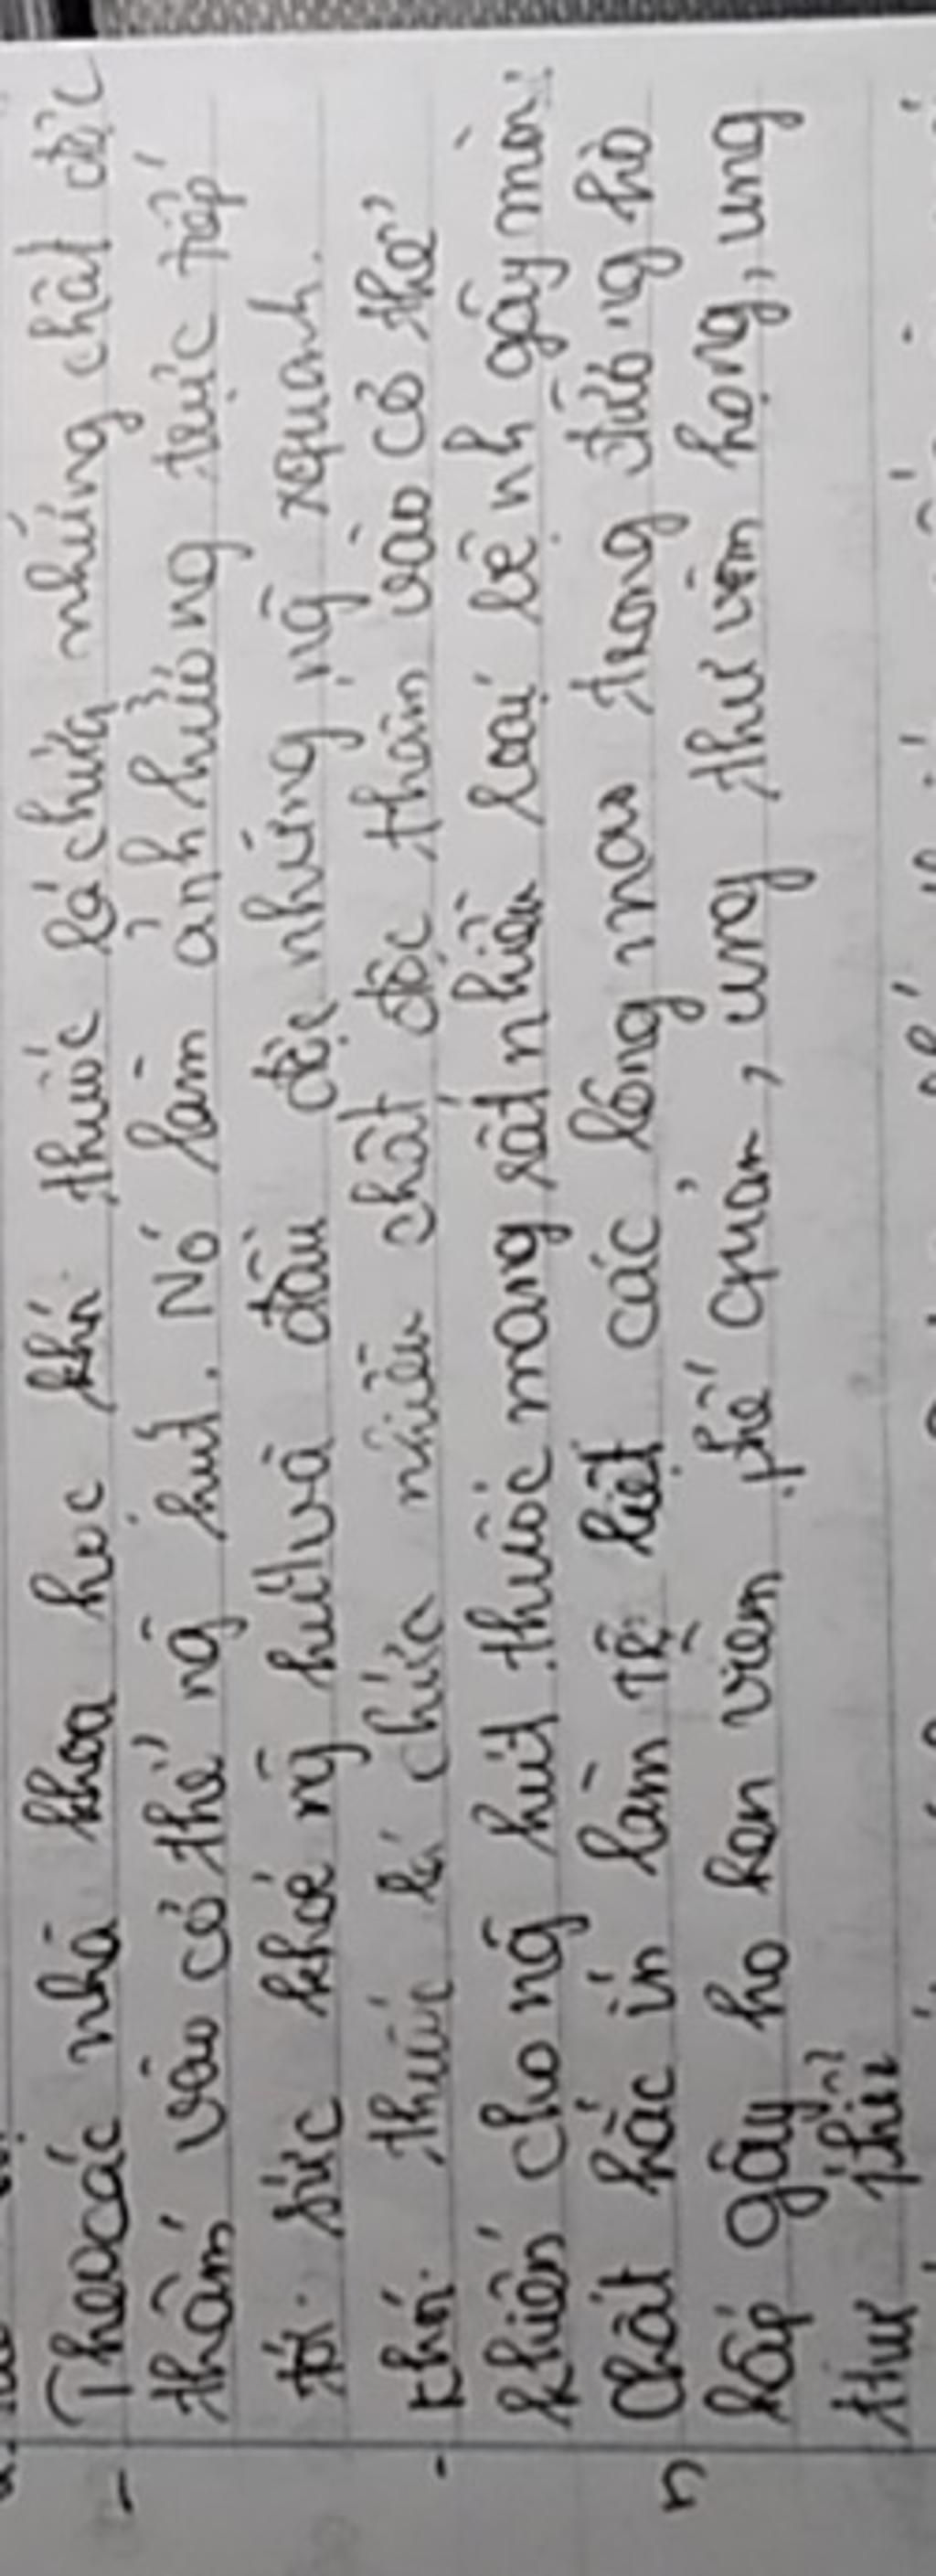 - Theo các nhà khoa học khói thuốc lá chứa những chất độc
thấm vào cơ thể ng̃ hút. Nó làm ảnh hưởng trực tiếp
tới sức khoẻ ng̃ hút và đầu độc những ng̃ xquanh.
- Khói thuốc lá chứa nhiều chất độc thấm vào cơ thể
khiến cho ng̃ hút thuốc mang rất nhiều loại bệnh gây mòn:
Chất hắc ín làm tê liệt các lông mao trong đường hô
hấp gây ho hen viêm phế quản, ung thư vòm họng, ung
thư phổi